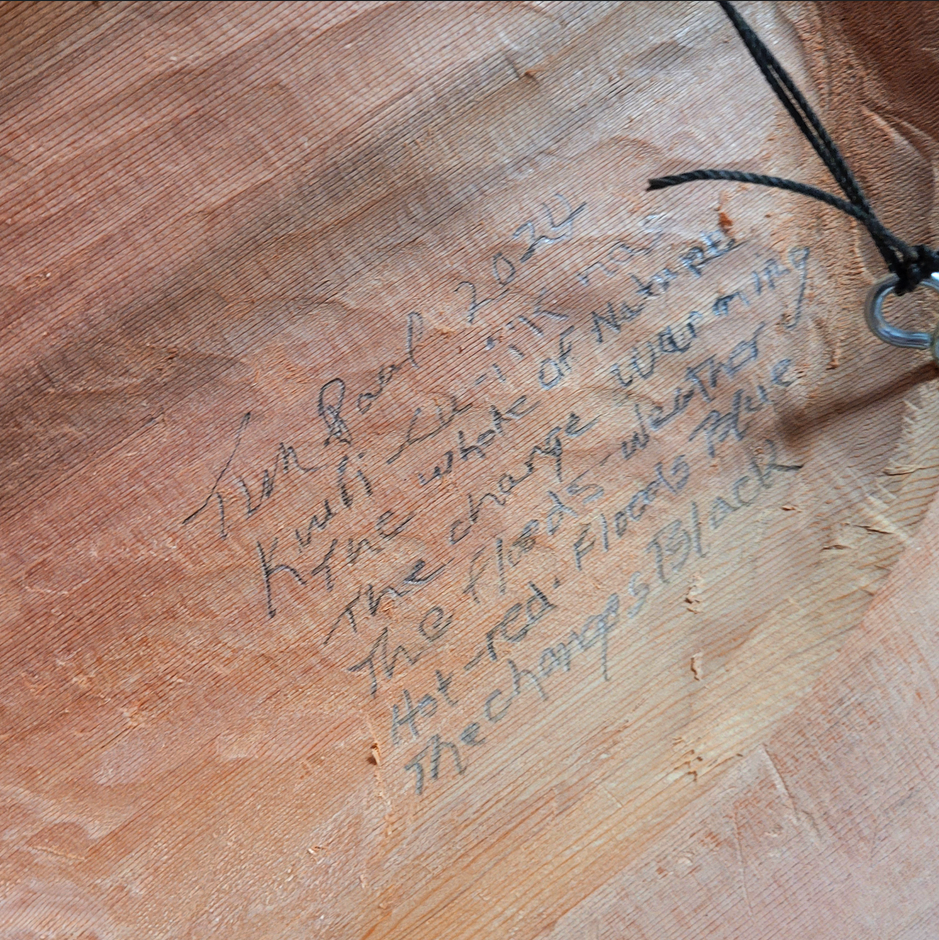 Tim Paul 2024
Kwiti
The whole of Nature
The change warming
The floods weather
Hot-red. Floods Blue
The changes Black